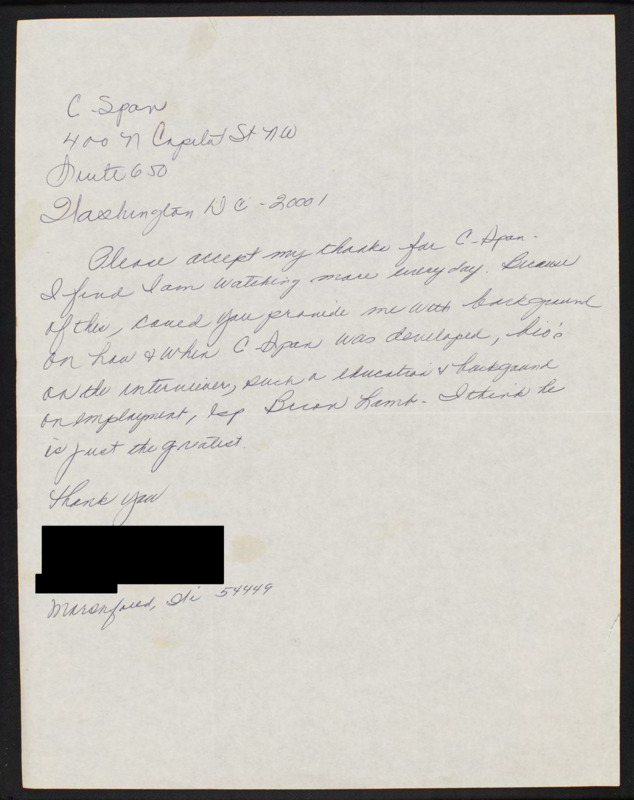 C-Span
400 N Capitol St NW
Suite 650
Washington DC - 20001
Please accept my thanks for C-Span.
I find I am watching more everyday. Because
of this, could you provide me with background
on how & when C Span was developed, bio's
on the interviewers, such a education & background
on employment, esp Brian Lamb - I think he
is just the greatest.
Thank you
Marshfield, Wi 54449